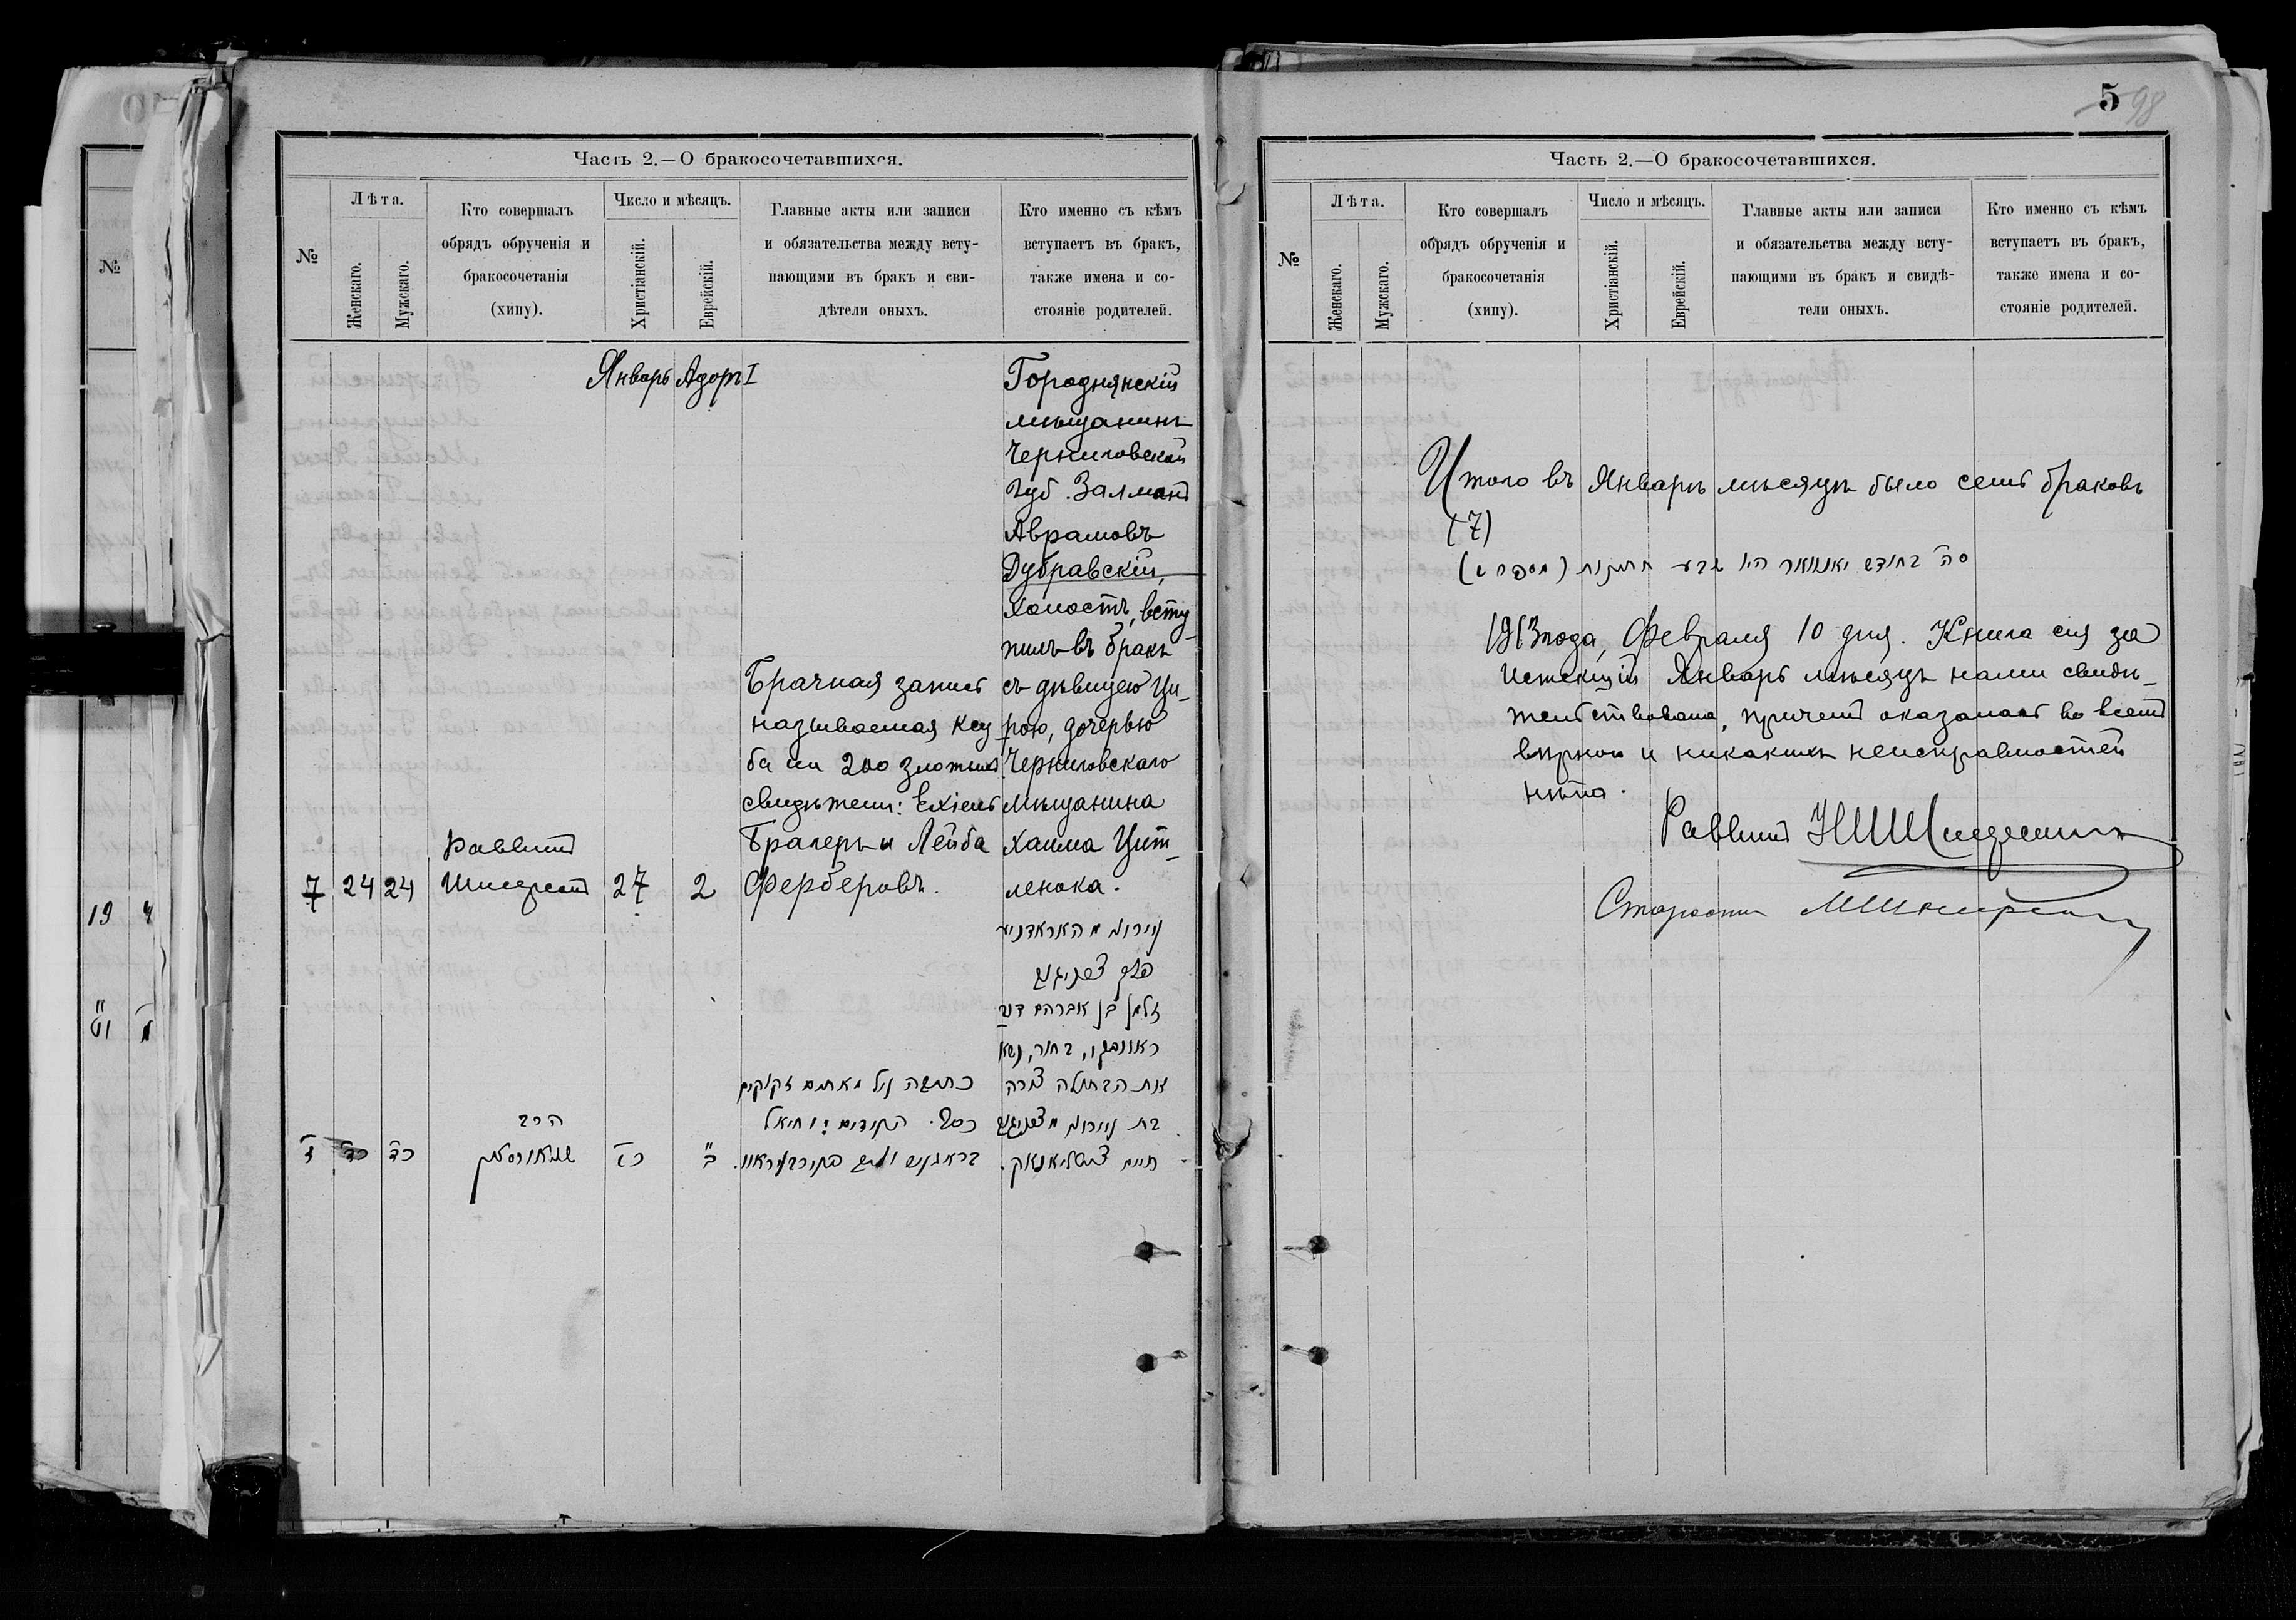 Часть 2.—О бракосочетавшихся.
№
Лѣта.
Женскаго.
Мужскаго.
Кто совершалъ
обрядъ обрученія и
бракосочетанія
(хипу).
Число и мѣсяцъ.
Христіанскій.
Еврейскій.
Главные акты или записи
и обязательства между всту-
пающими въ бракъ и сви-
дѣтели оныхъ.
Кто именно съ кѣмъ
вступаетъ въ бракъ,
также имена и со-
стояніе родителей.
Январь Адоръ I
7
24
24
Раввинъ
27
2
Брачная запись
называемая кеу
ба на 200 злотыхъ
свидѣтели: Ехіель
Брагеръ и Лейба
Ферберовъ.
Городнянскій
мѣщанинъ
Черниговской
Губ. Залманъ
Аврамовъ
Дубравскій,
холостъ, всту-
пилъ въ бракъ
съ дѣвицею Ци-
рою, дочерью
Черниговскаго
мѣщанина
Хаима Цит-
ленока.
ז
כד
כד
הרב
כז
ב
כתובה על מאתים זקוקים
כסף. העידים: יחיאל
זלמן בן אברהם דוב
ראווסקי, בחור, נשא
את הבתולה צירה
חיים ציטליאנאק.
19
№
5 98
Часть 2.—О бракосочетавшихся.
№
Лѣта.
Женскаго.
Мужскаго.
Кто совершалъ
обрядъ обрученія и
бракосочетанія
(хипу).
Число и мѣсяцъ.
Христіанскій.
Еврейскій.
Главные акты или записи
и обязательства между всту-
пающими въ бракъ и свидѣ-
тели оныхъ.
Кто именно съ кѣмъ
вступаетъ въ бракъ,
также имена и со-
стояніе родителей.
Итого въ Январѣ мѣсяцѣ было семь браковъ
(7)
סה בחודש יאנוואר היו שבע חתונות
1913 года, Февраля 10 дня. Книга сія за
истекшій Январь мѣсяцъ нами свидѣ-
тельствована, причемъ оказалась во всемъ
вѣрною и никакихъ неисправностей
нѣтъ.
Раввинъ
Староста